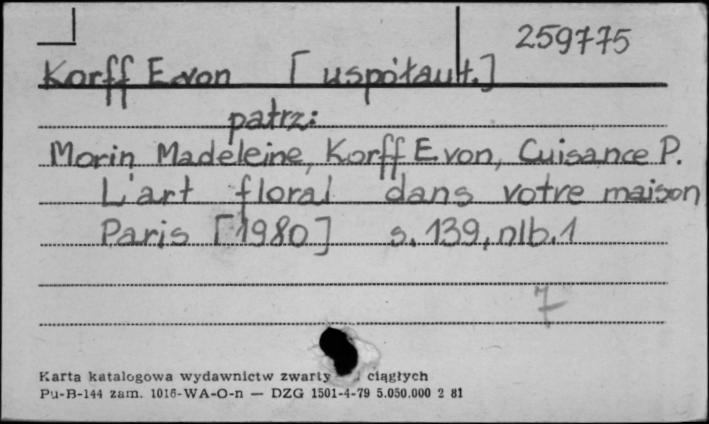 259775
Korff E. von [uspółaut.]
patrz:
Morin Madeleine, Korff E. von, Cuisance P.
L'art floral dans votre maison
Paris [1980] s. 139, nlb. 1
7
Karta katalogowa wydawnictw zwarty ciągłych
Pu-B-144 zam. 1016-WA-O-n — DZG 1501-4-79 5.050.000 2 81